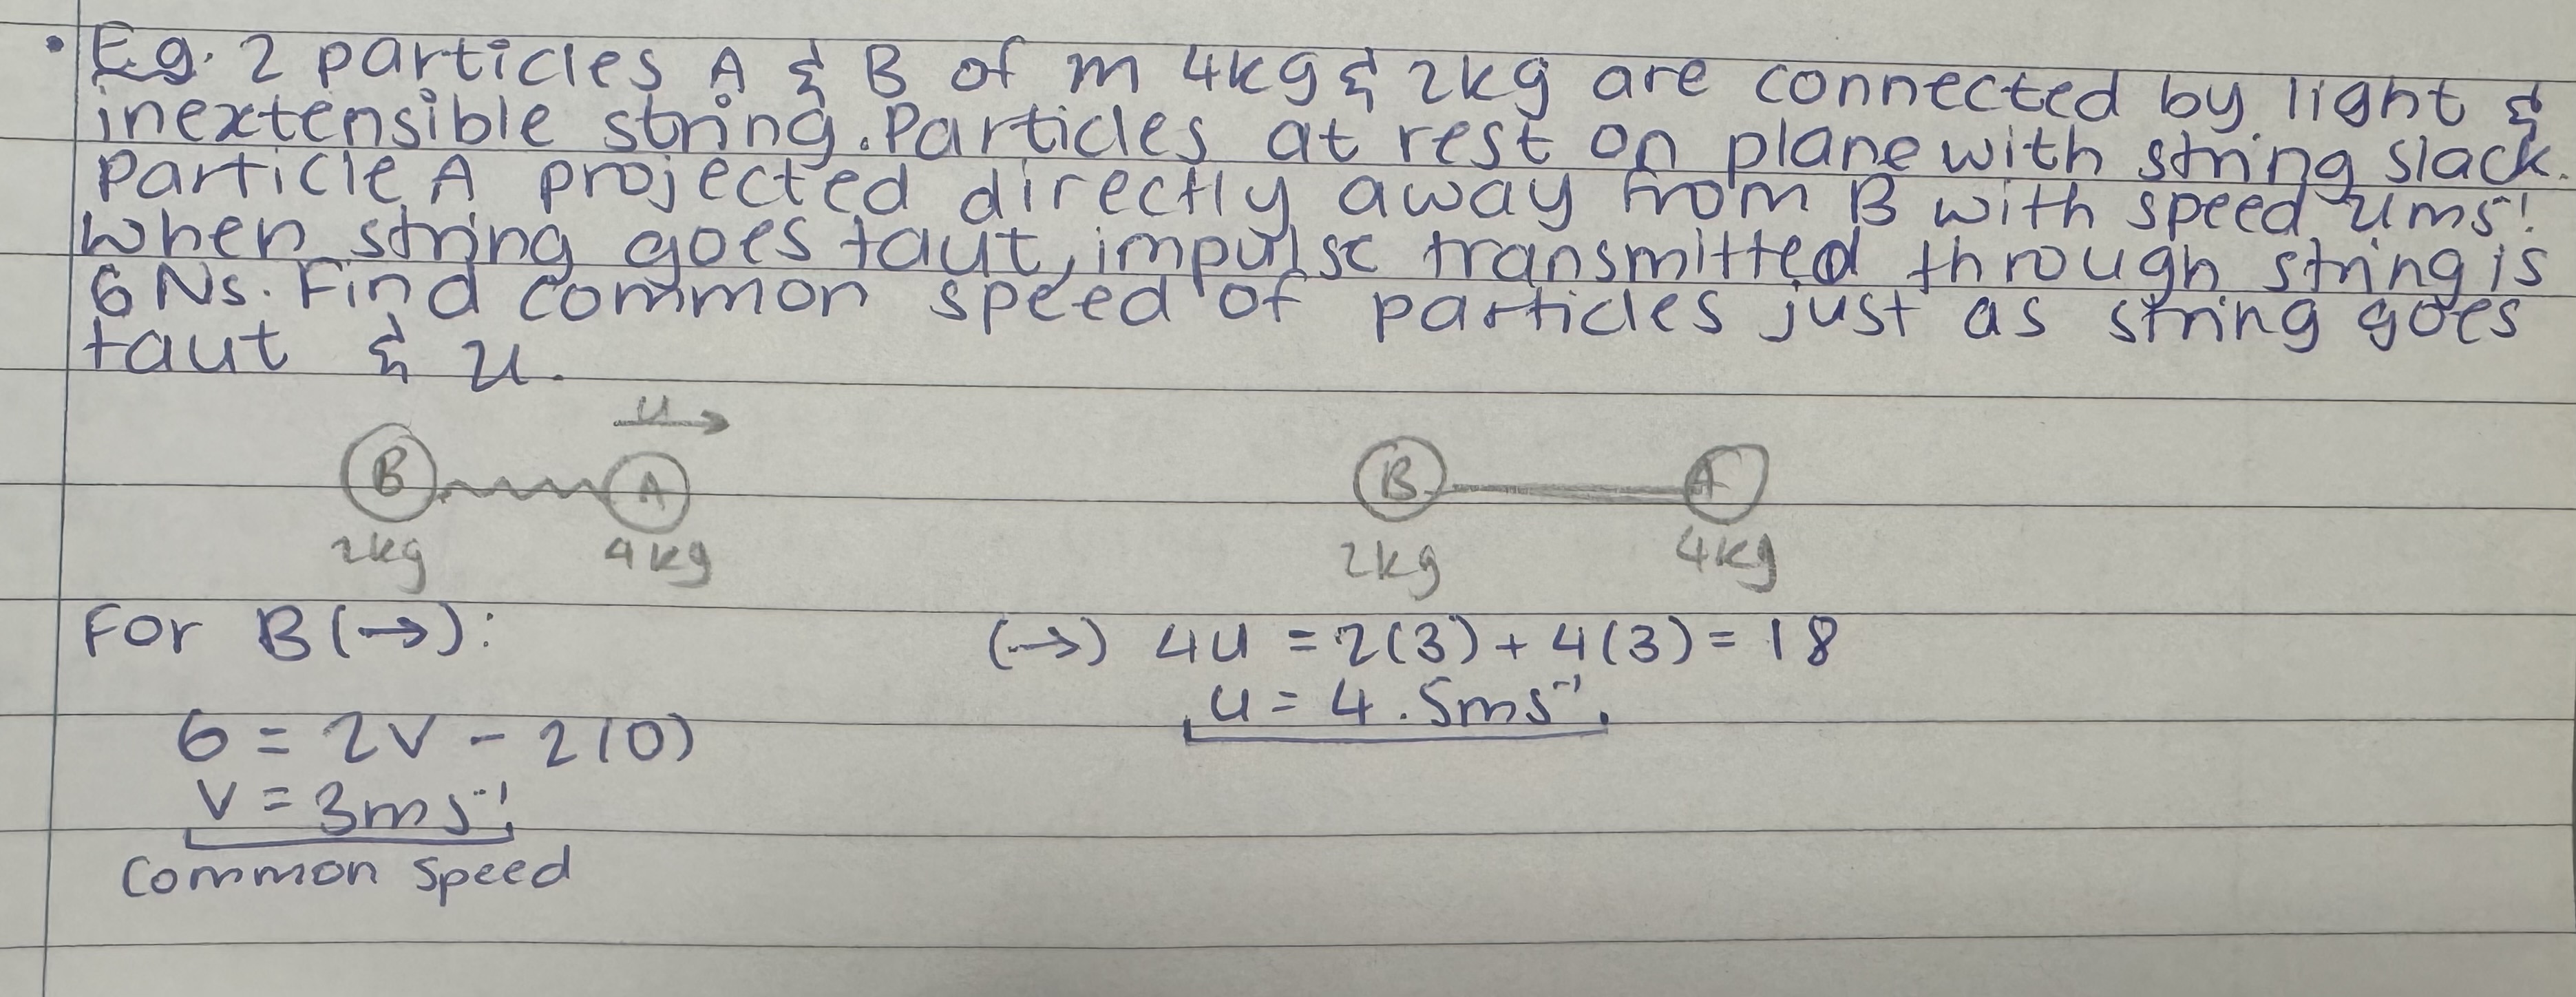 • Eg. 2 particles A & B of m 4kg & 2kg are connected by light &
inextensible string. Particles at rest on plane with string slack.
Particle A projected directly away from B with speed ums⁻¹.
When string goes taut, impulse transmitted through string is
6Ns. Find common speed of particles just as string goes
taut & u.
u →
B A
2kg 4kg
B A
2kg 4kg
For B (→):
6 = 2v - 2(0)
v = 3ms⁻¹.
Common speed
(→) 4u = 2(3) + 4(3) = 18
u = 4.5ms⁻¹.